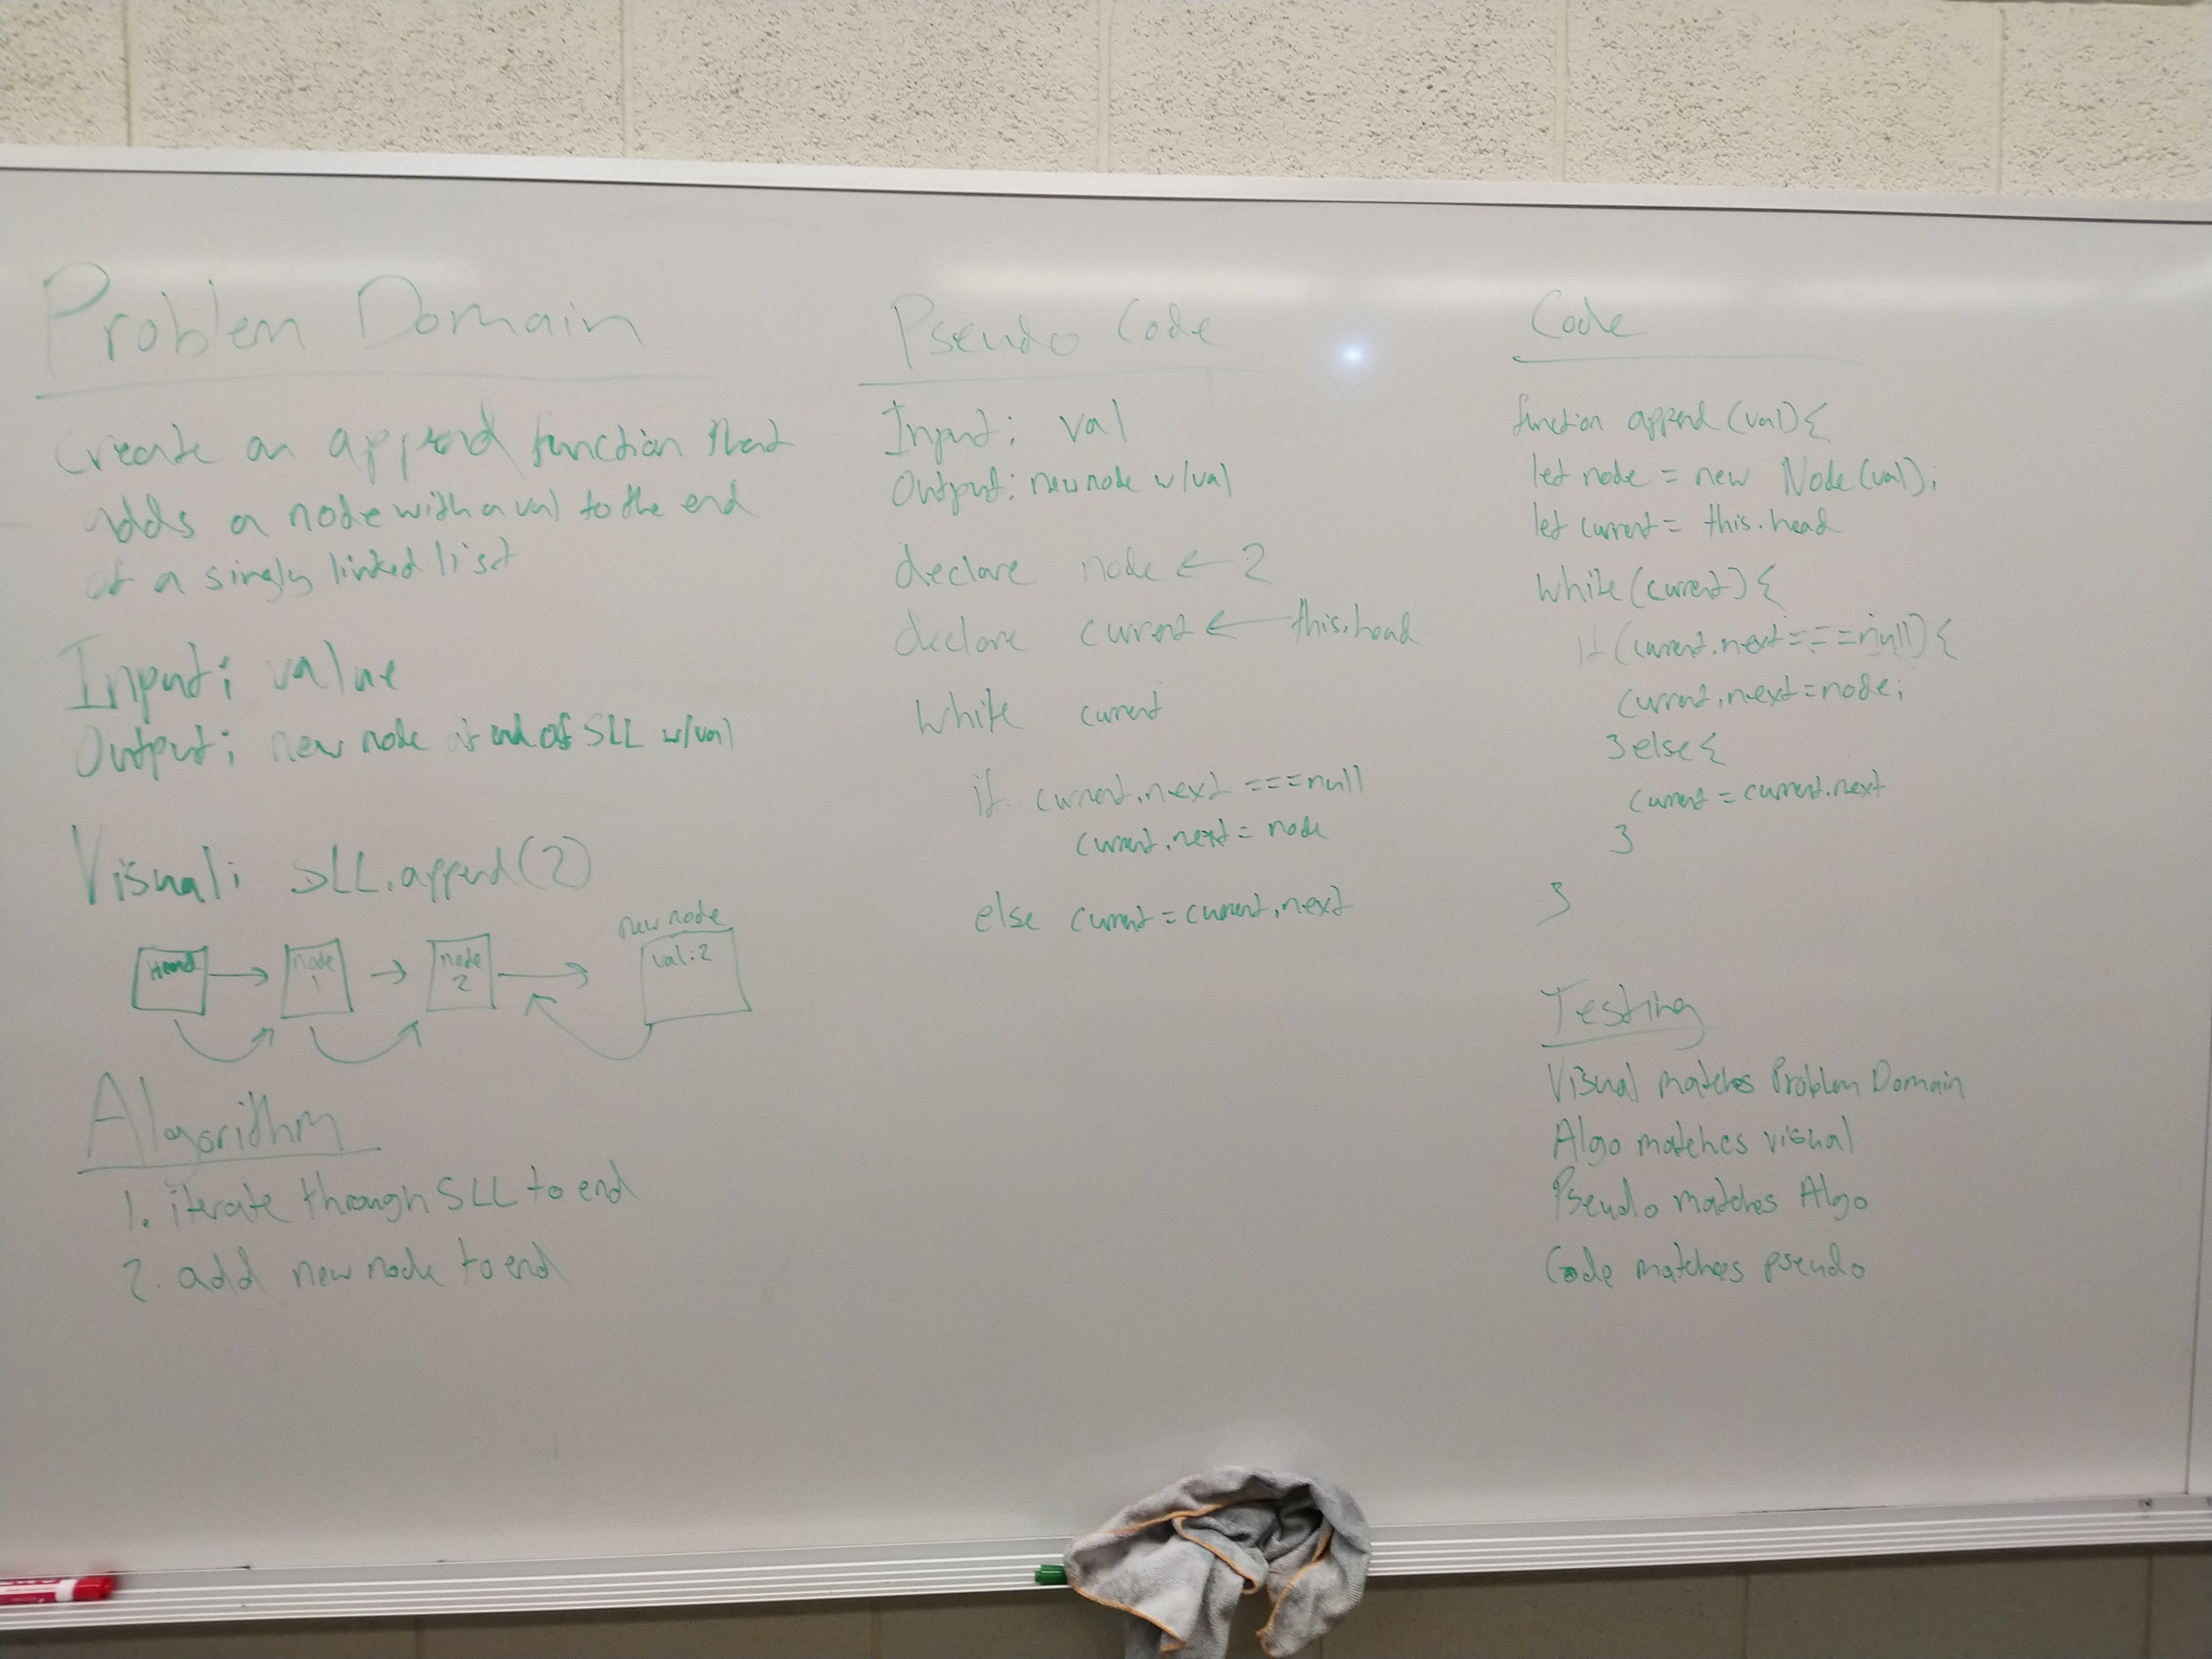 Problem Domain
create an append function that
adds a node with a val to the end
of a singly linked list
Input: value
Output: new node at end of SLL w/val
Visual: SLL.append(2)
new node
Head
node
1
node
2
val:2
Algorithm
1. iterate through SLL to end
2. add new node to end
Pseudo Code
Input: val
Output: new node w/val
declare node ← 2
declare current ← this.head
while current
if current.next === null
current.next = node
else current = current.next
Code
function append (val) {
let node = new Node(val);
let current = this.head
while (current) {
if (current.next === null) {
current.next = node;
} else {
current = current.next
}
}
Testing
Visual matches Problem Domain
Algo matches visual
Pseudo matches Algo
Code matches pseudo